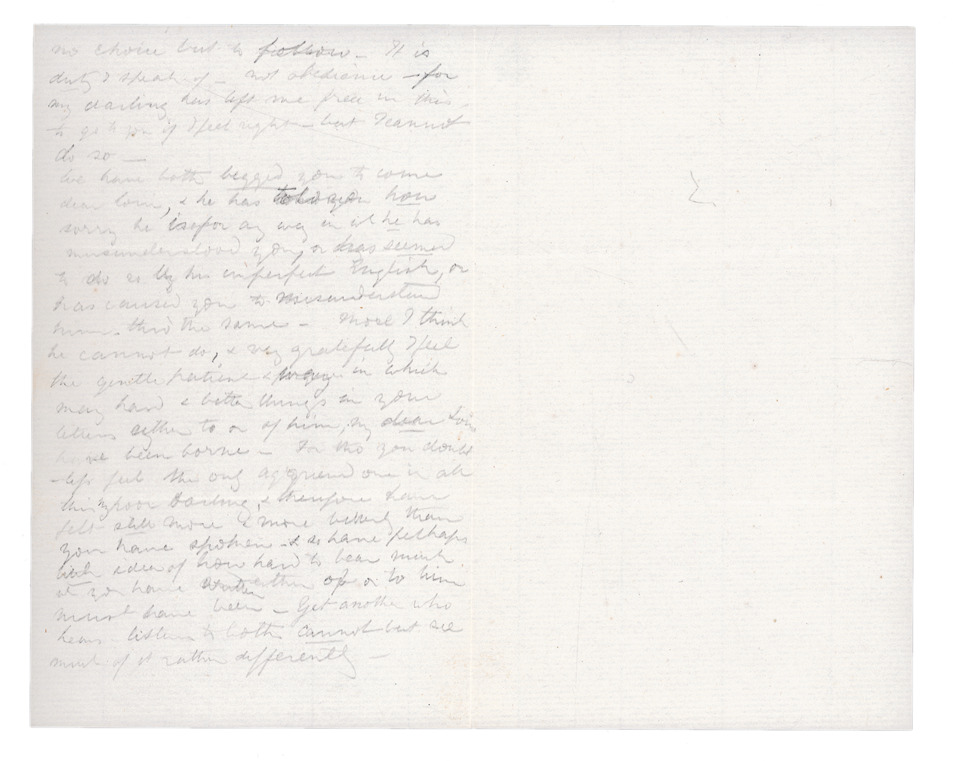 no choice but to follow - It is
duty I speak of - not obedience - for
my darling has left me free in this
to go to you if I feel right - but I cannot
do so -
We have both begged you to come
dear Loui, & he has told you how
sorry he is for any way in wh he has
misunderstood you, or has seemed
to do so by his imperfect English, or
has caused you to misunderstand
him thro' the same - More I think
he cannot do, & very gratefully I feel
the gentle patient way in which
many hard & bitter things in your
letters either to or of him, my dear Loui
have been borne - For tho you doubt
-less feel the only aggrieved one in all
this, poor Darling, & therefore have
felt still more & more bitterly than
you have spoken - & so have perhaps
little idea of how hard to bear much
yt you have written either of or to him
must have been - Yet another who
hears listens to both cannot but see
much of it rather differently -